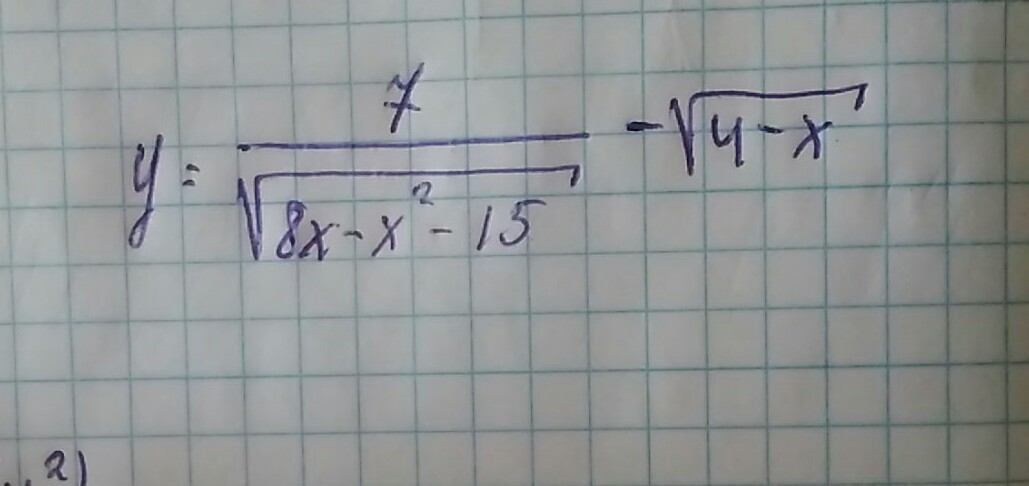 y = 7 / √(8x - x² - 15) - √(4 - x)
2)